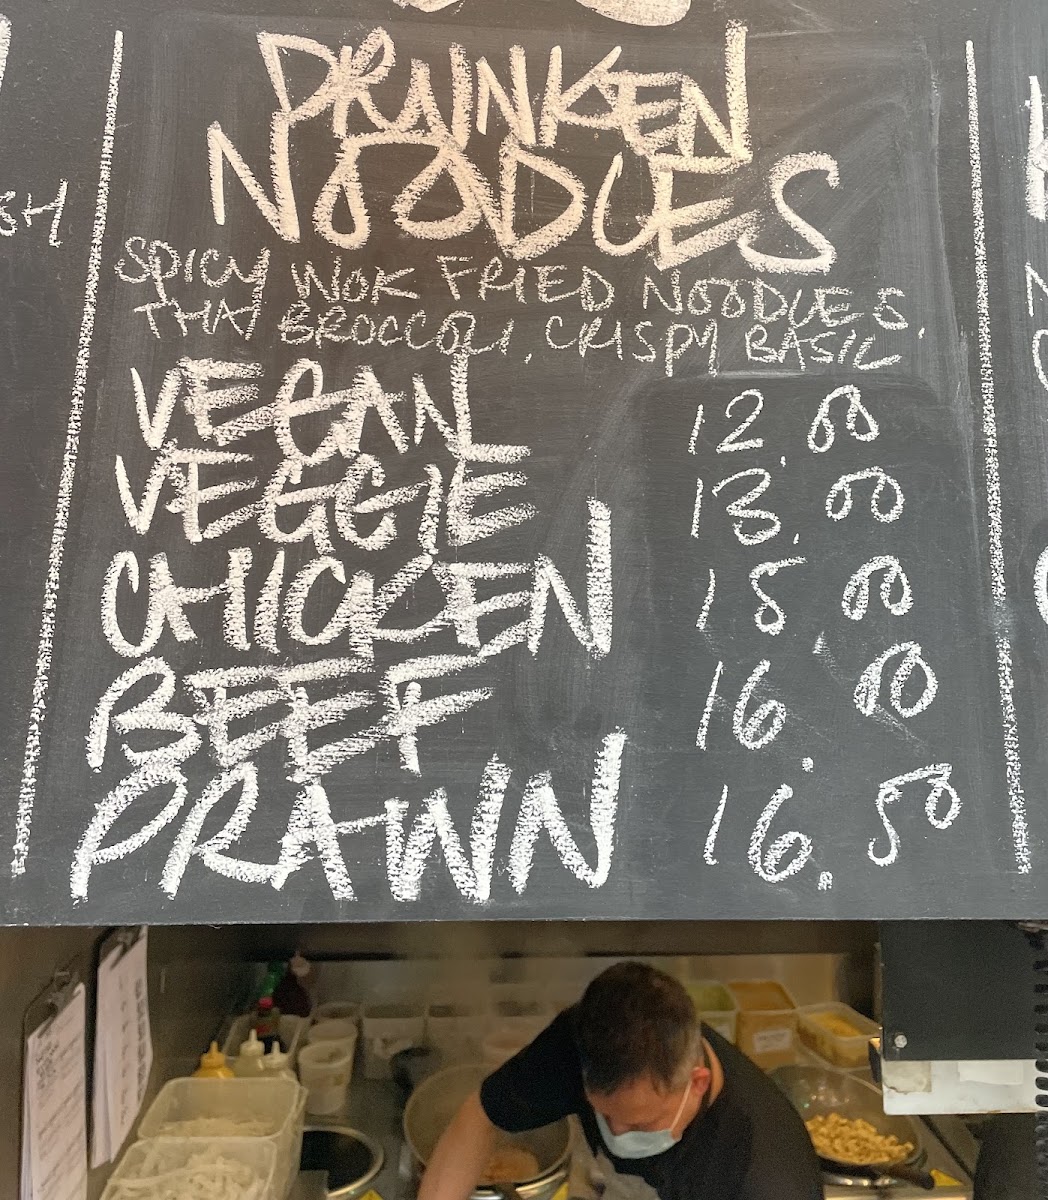 DRUNKEN
NOODLES
SPICY WOK FRIED NOODLES,
THAI BROCCOLI, CRISPY BASIL
VEGAN 12.00
VEGGIE 13.00
CHICKEN 15.00
BEEF 16.00
PRAWN 16.50